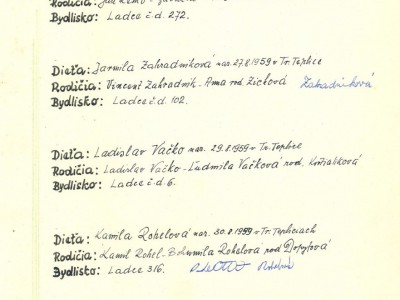 Rodičia:
Bydlisko: Ladce č.d. 272.
Dieťa: Jarmila Zahradníková nar. 27.8.1959 v Tr. Teplice
Rodičia: Vincent Zahradník - Anna rod. Žičková Zahradníková
Bydlisko: Ladce č.d. 102.
Dieťa: Ladislav Vačko nar. 29.8.1959 v Tr. Teplice
Rodičia: Ladislav Vačko - Ľudmila Vačková rod.
Bydlisko: Ladce č.d. 6.
Dieťa: Kamila Rohelová nar. 30.8.1959 v Tr. Tepliciach
Rodičia: Kamil Rohel - Bohumila Rohelová rod
Bydlisko: Ladce 316.